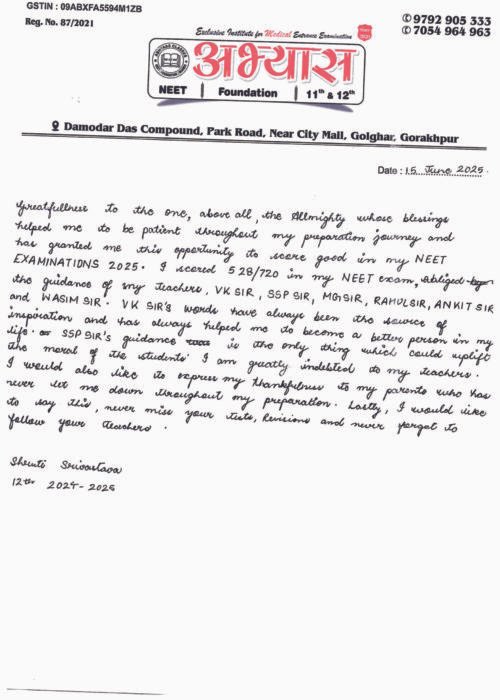 GSTIN : 09ABXFA5594M1ZB
Reg. No. 87/2021
✆ 9792 905 333
✆ 7054 964 963
Exclusive Institute for Medical Entrance Examination
अभ्यास
NEET | Foundation | 11th & 12th
Damodar Das Compound, Park Road, Near City Mall, Golghar, Gorakhpur
Date : 15 June 2025.
Greatfullness to the one, above all, the Allmighty whose blessings
helped me to be patient throughout my preparation journey and
has granted me this opportunity to score good in my NEET
EXAMINATIONS 2025. I scored 528/720 in my NEET exam, obliged
the guidance of my teachers, VK SIR, SSP SIR, MG SIR, RAHUL SIR, ANKIT SIR
and WASIM SIR. VK SIR'S words have always been the source of
inspiration and has always helped me to become a better person in my
life. SSP SIR's guidance is the only thing which could uplift
the moral of the students I am greatly indebted to my teachers.
I would also like to express my thankfulness to my parents who has
never let me down throughout my preparation. Lastly, I would like
to say this, never miss your tests, Revisions and never forget to
follow your teachers.
Shruti Srivastava
12th 2024-2025